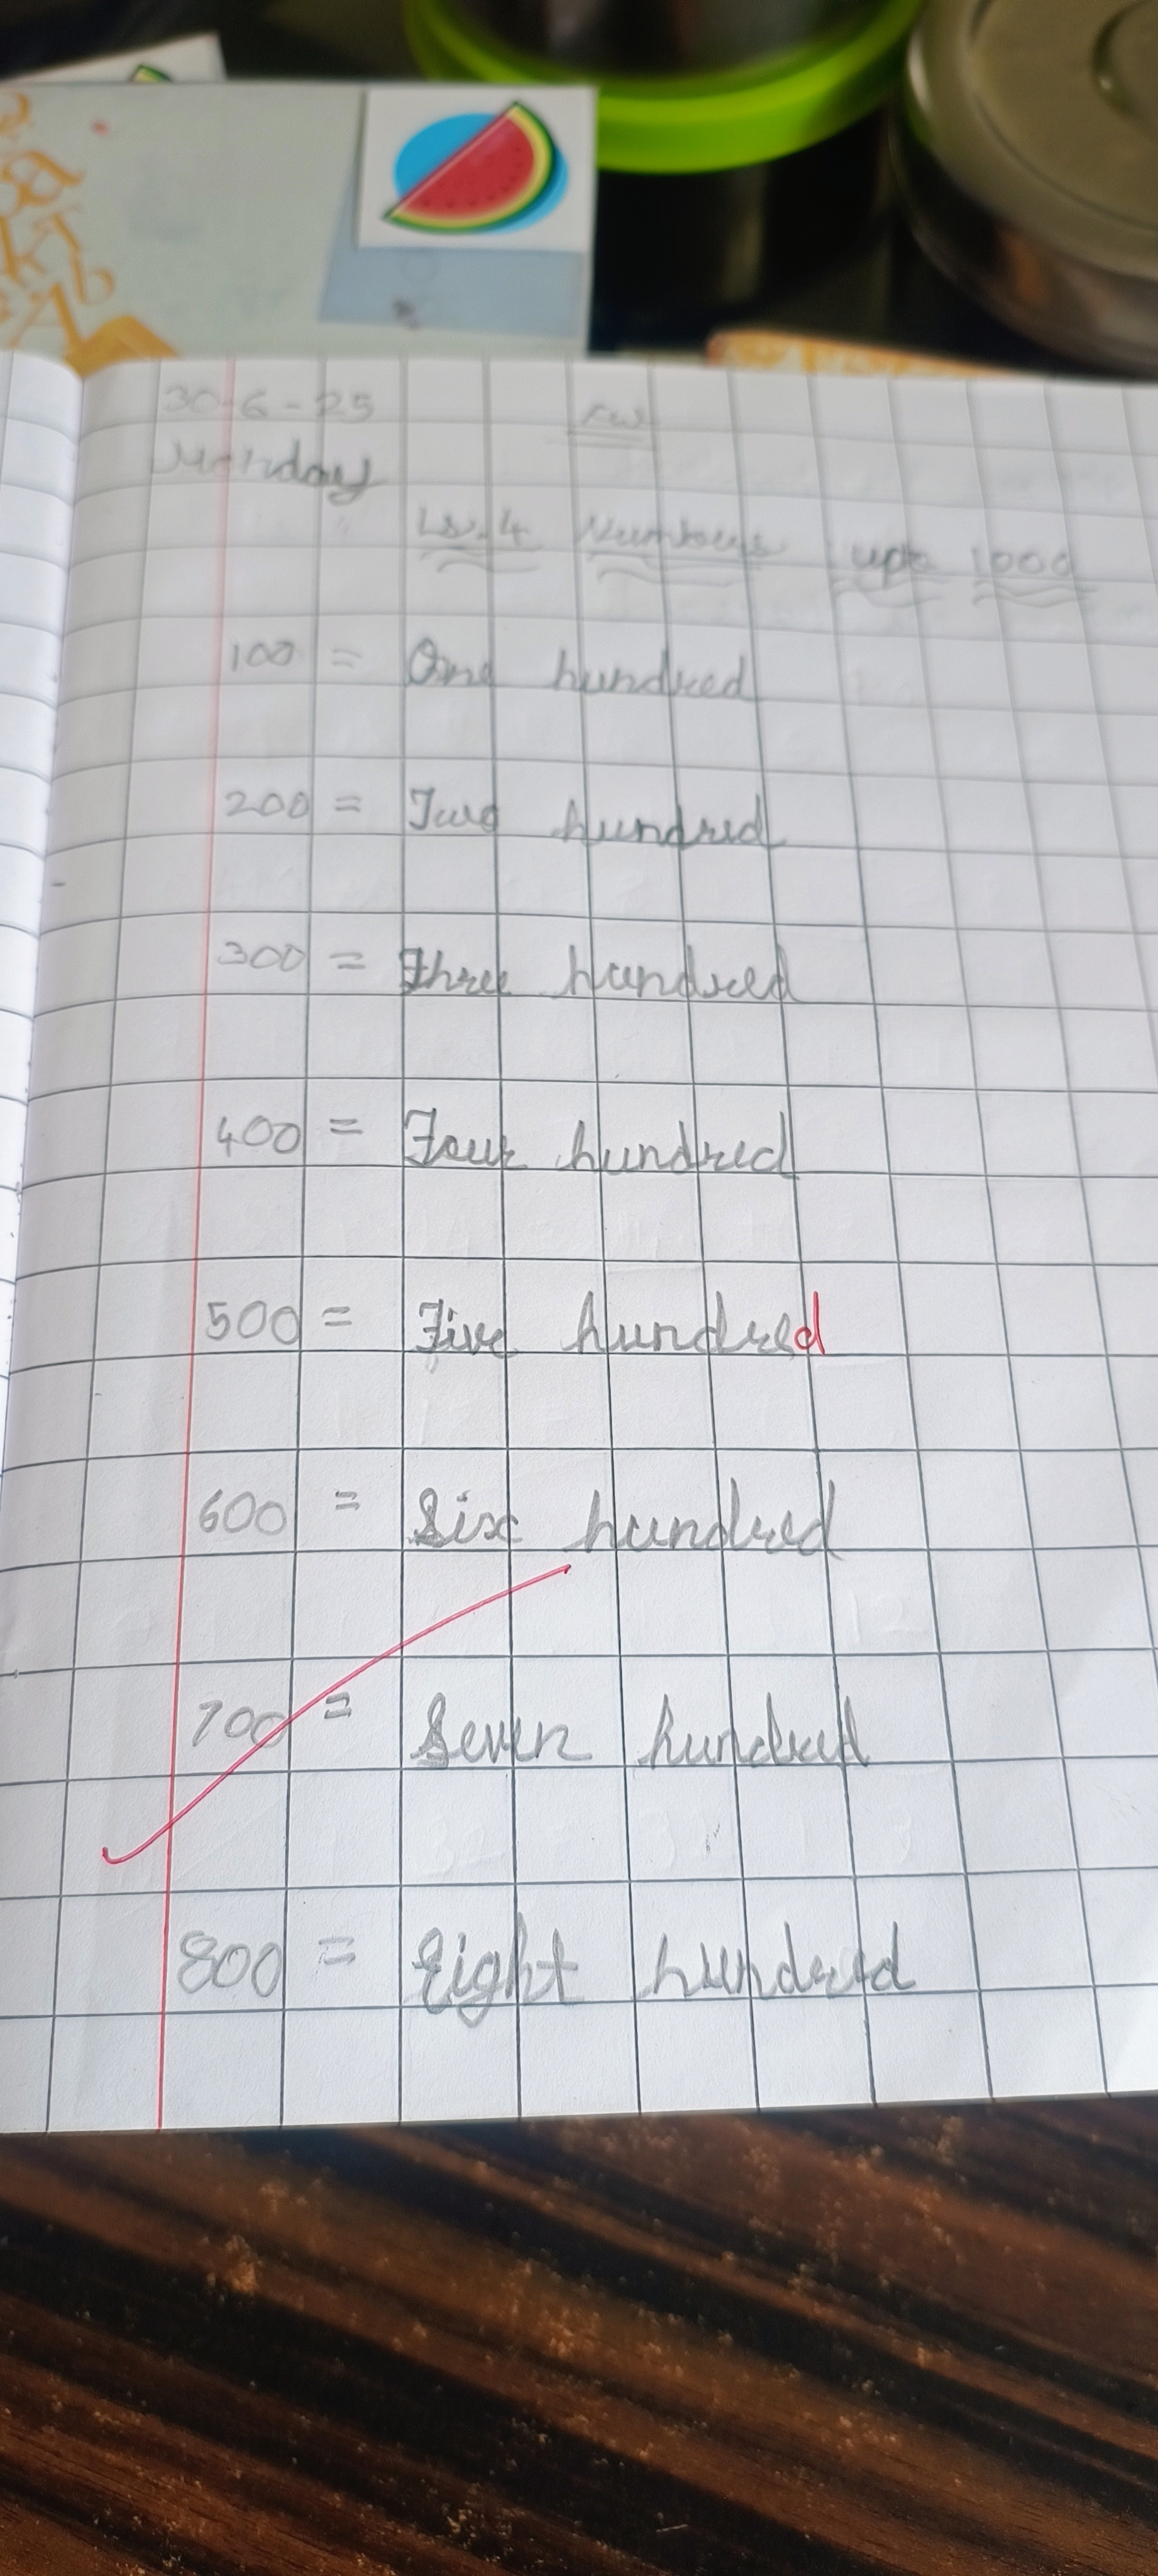 30-6-25
Monday
Ls.4 Numbers upto 1000
100 = One hundred
200 = Two hundred
300 = Three hundred
400 = Four hundred
500 = Five hundred
600 = Six hundred
700 = Seven hundred
800 = Eight hundred